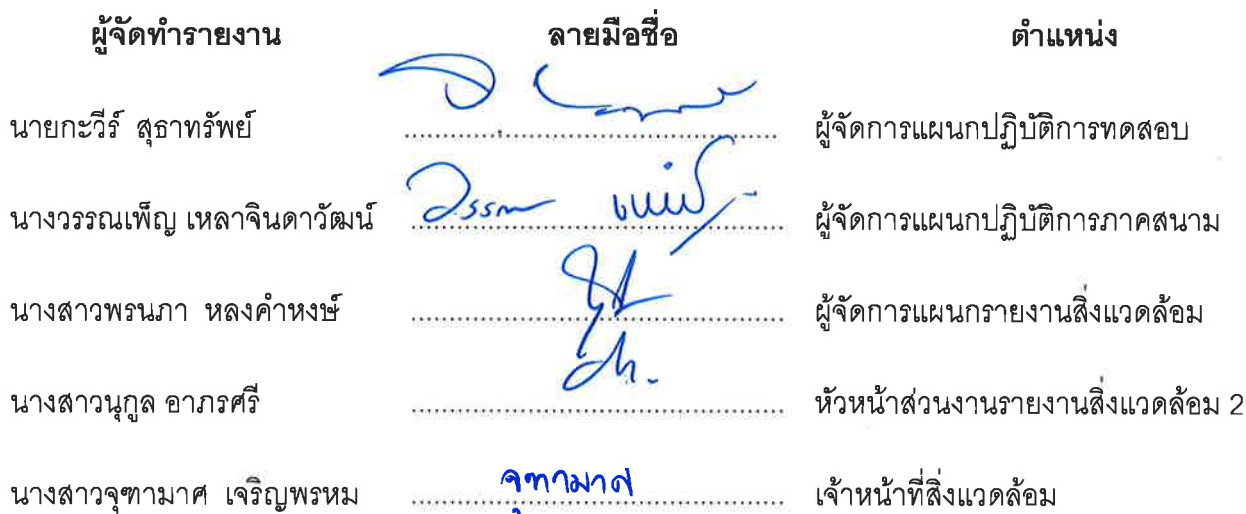 ผู้จัดทำรายงาน ลายมือชื่อ ตำแหน่ง
นายกะวีร์ สุธาทรัพย์ ผู้จัดการแผนกปฏิบัติการทดสอบ
นางวรรณเพ็ญ เหลาจินดาวัฒน์ ผู้จัดการแผนกปฏิบัติการภาคสนาม
นางสาวพรนภา หลงคำหงษ์ ผู้จัดการแผนกรายงานสิ่งแวดล้อม
นางสาวนุกูล อาภรศรี หัวหน้าส่วนงานรายงานสิ่งแวดล้อม 2
นางสาวจุฑามาศ เจริญพรหม จุฑามาศ เจ้าหน้าที่สิ่งแวดล้อม